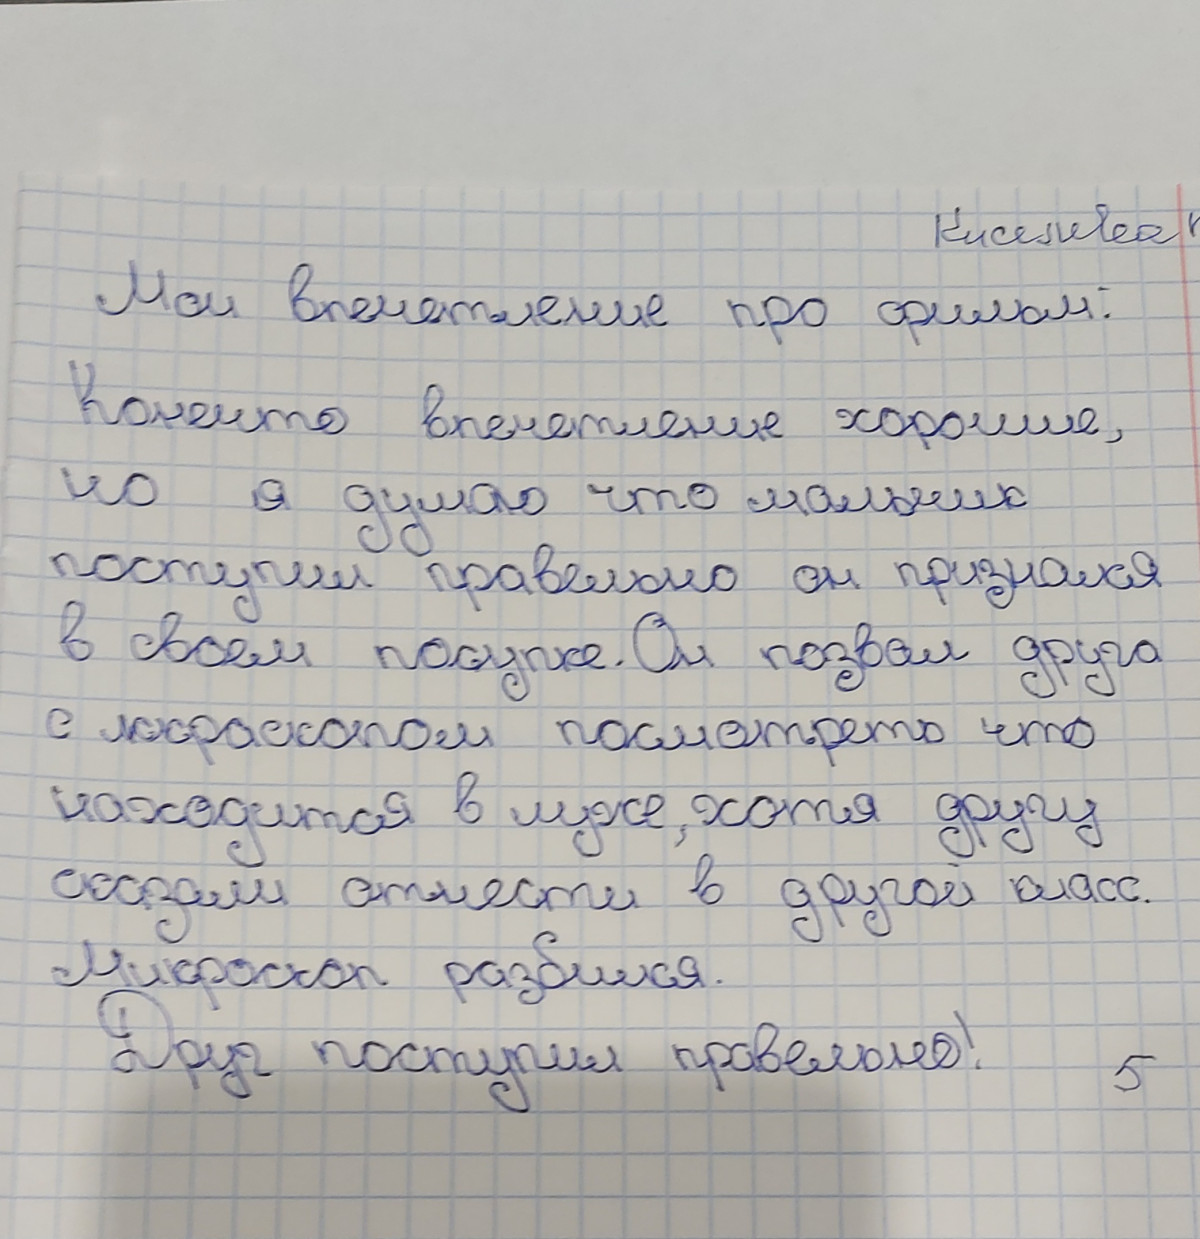 Мои впечатление про фильм:
Конешто впечатление хорошие,
но я думаю что мальчик
поступил правельно он признался
в своем посупке. Он позвал друга
с микраскопом посмотреть что
находится в луже, хотя другу
сказали отнести в другой класс.
Микроскоп разбился.
Друг поступил правельно!
5